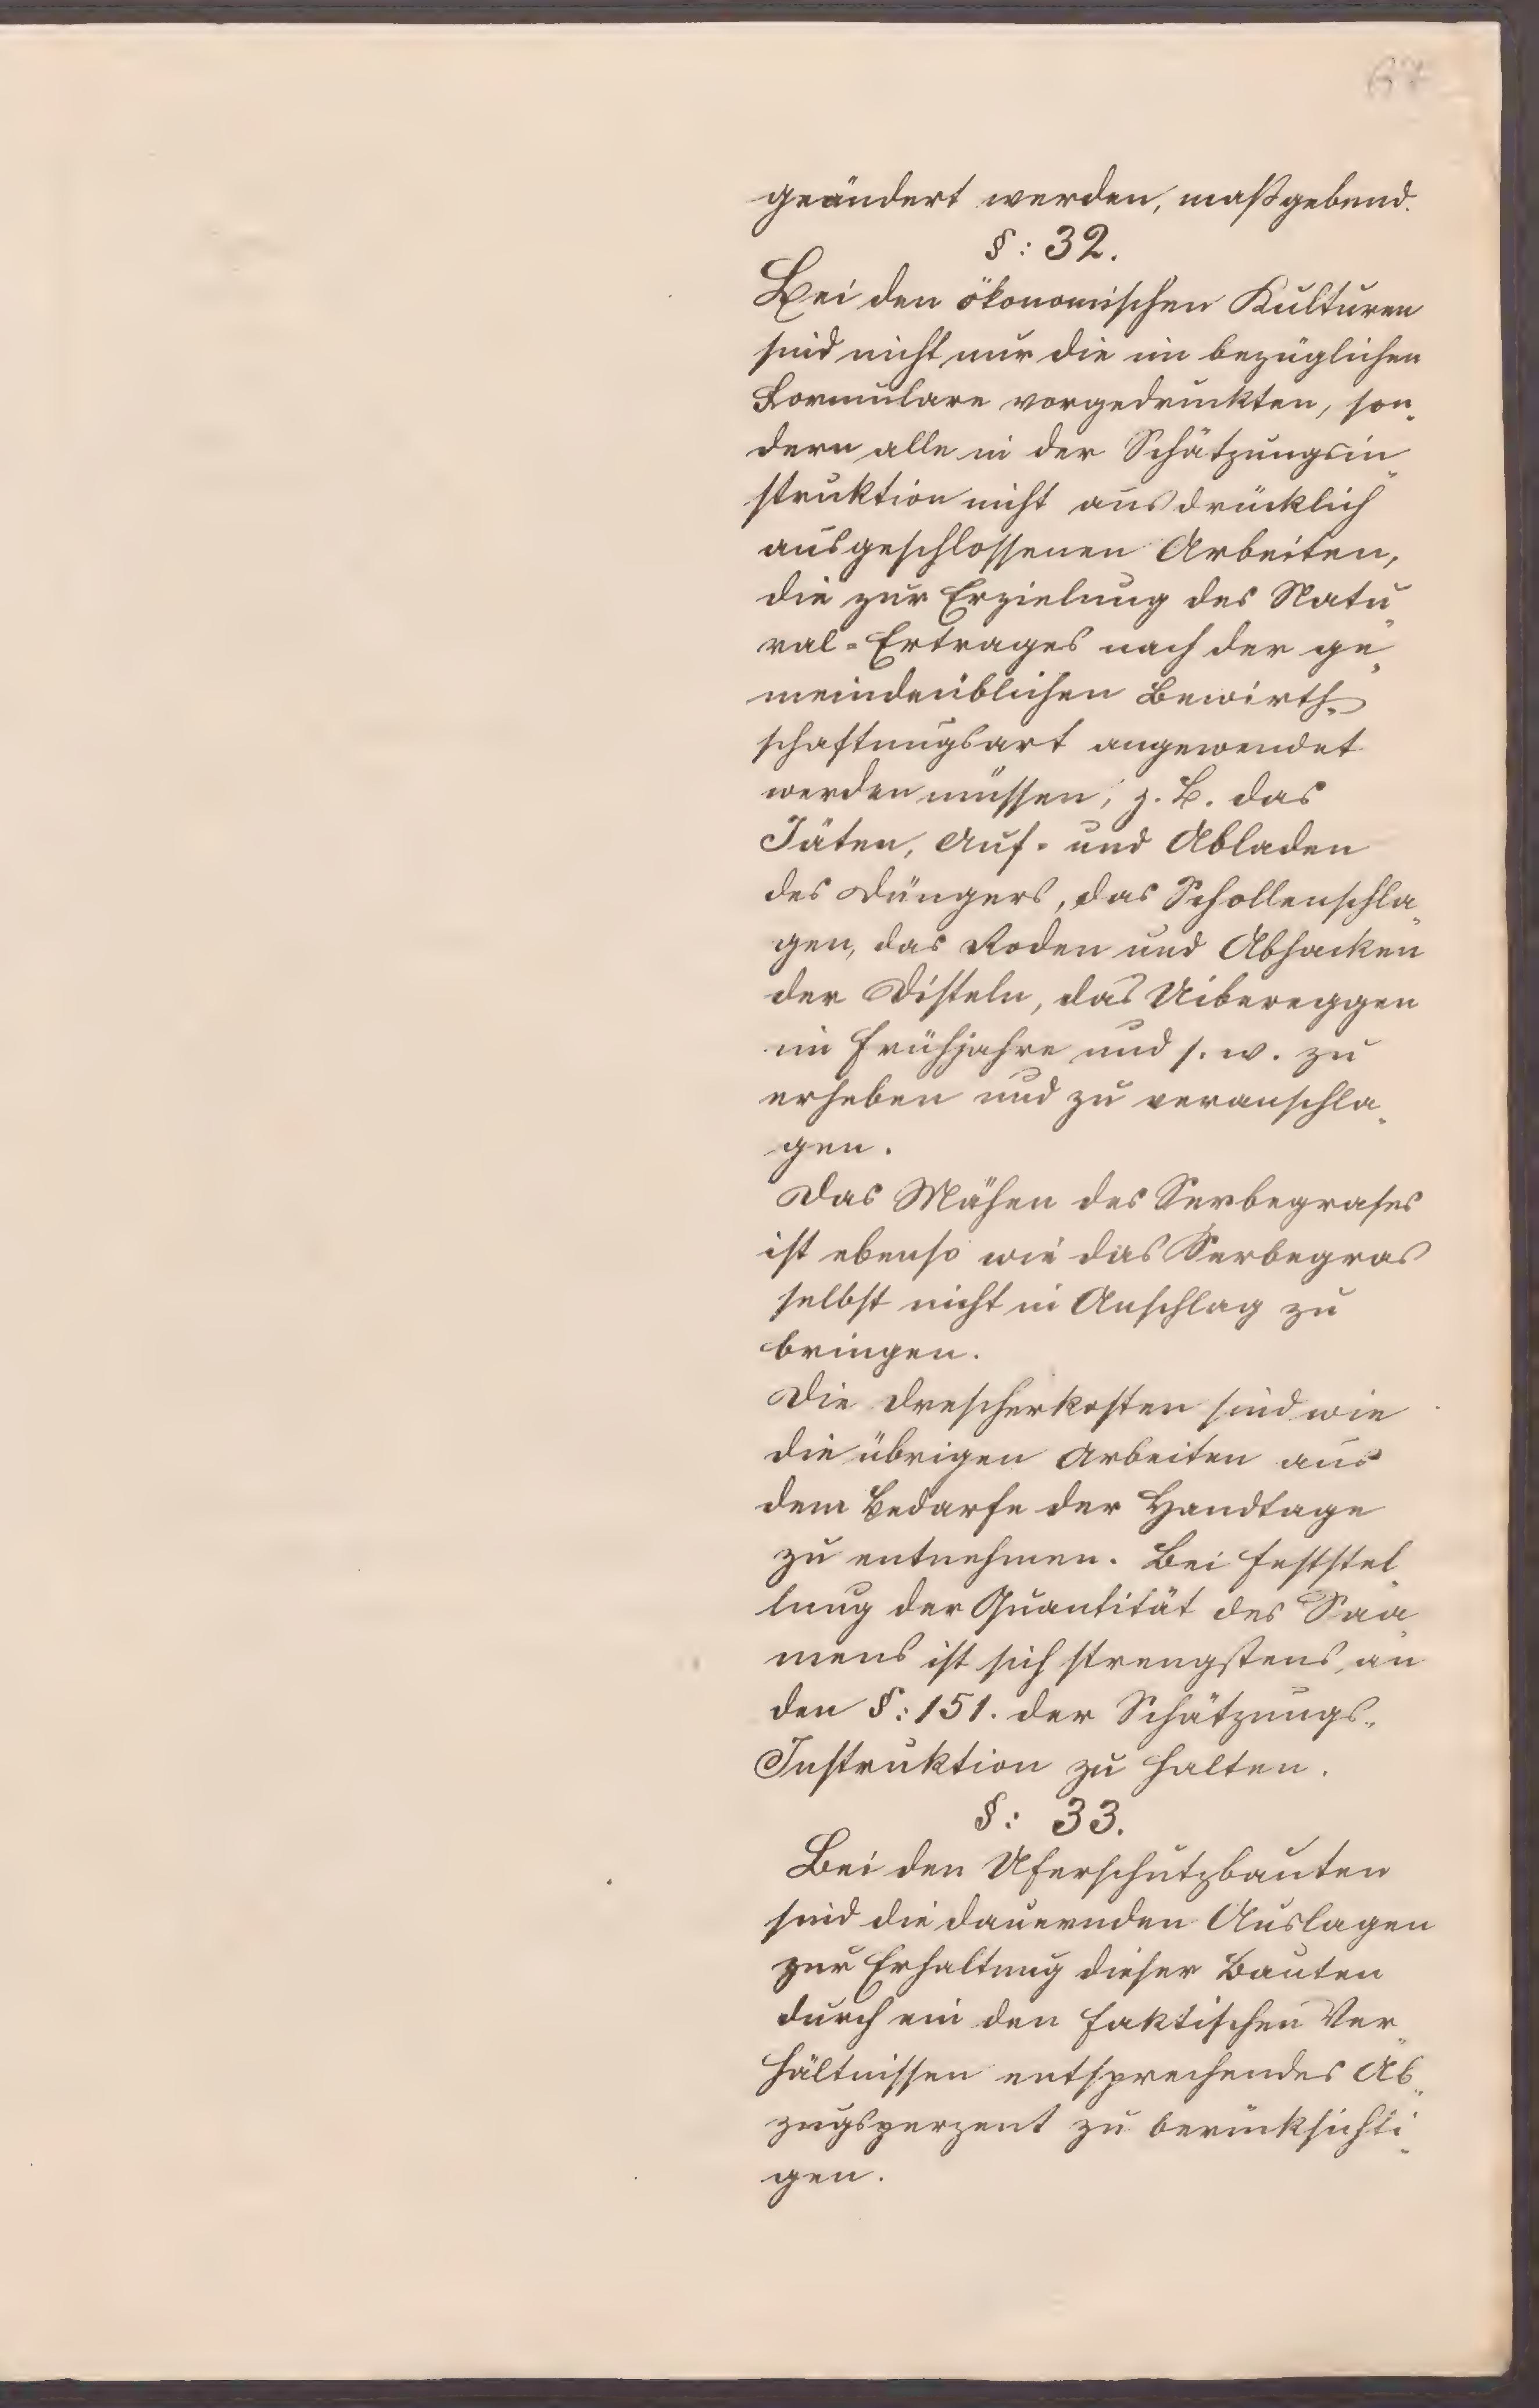 67
geändert werden, maßgebend.
§: 32.
Bei den ökonomischen Kulturen
sind nicht nur die im bezüglichen
Formulare vorgedruckten, son„
dern alle in der Schätzungsin„
struktion nicht ausdrücklich
ausgeschlossenen Arbeiten,
die zur Erzielung des Natu„
ral-Ertrages nach der ge„
meindeüblichen Bewirth„
schaftungsart angewendet
werden müssen, z. B. das
Jäten, Auf- und Abladen
des Düngers, das Schollenschla„
gen, das Roden und Abhacken
der Disteln, das Uibereggen
im Frühjahre und s. w. zu
erheben und zu veranschla„
gen.
Das Mähen des Serbegrases
ist ebenso wie das Serbegras
selbst nicht in Anschlag zu
bringen.
Die Drescherkosten sind wie
die übrigen Arbeiten aus
dem Bedarfe der Handtage
zu entnehmen. Bei Feststel„
lung der Quantität des Saa„
mens ist sich strengstens an
den §: 151. der Schätzungs„
Instruktion zu halten.
§: 33.
Bei den Uferschutzbauten
sind die dauernden Auslagen
zur Erhaltung dieser Bauten
durch ein den faktischen Ver„
hältnissen entsprechendes Ab„
zugsperzent zu berücksichti„
gen.